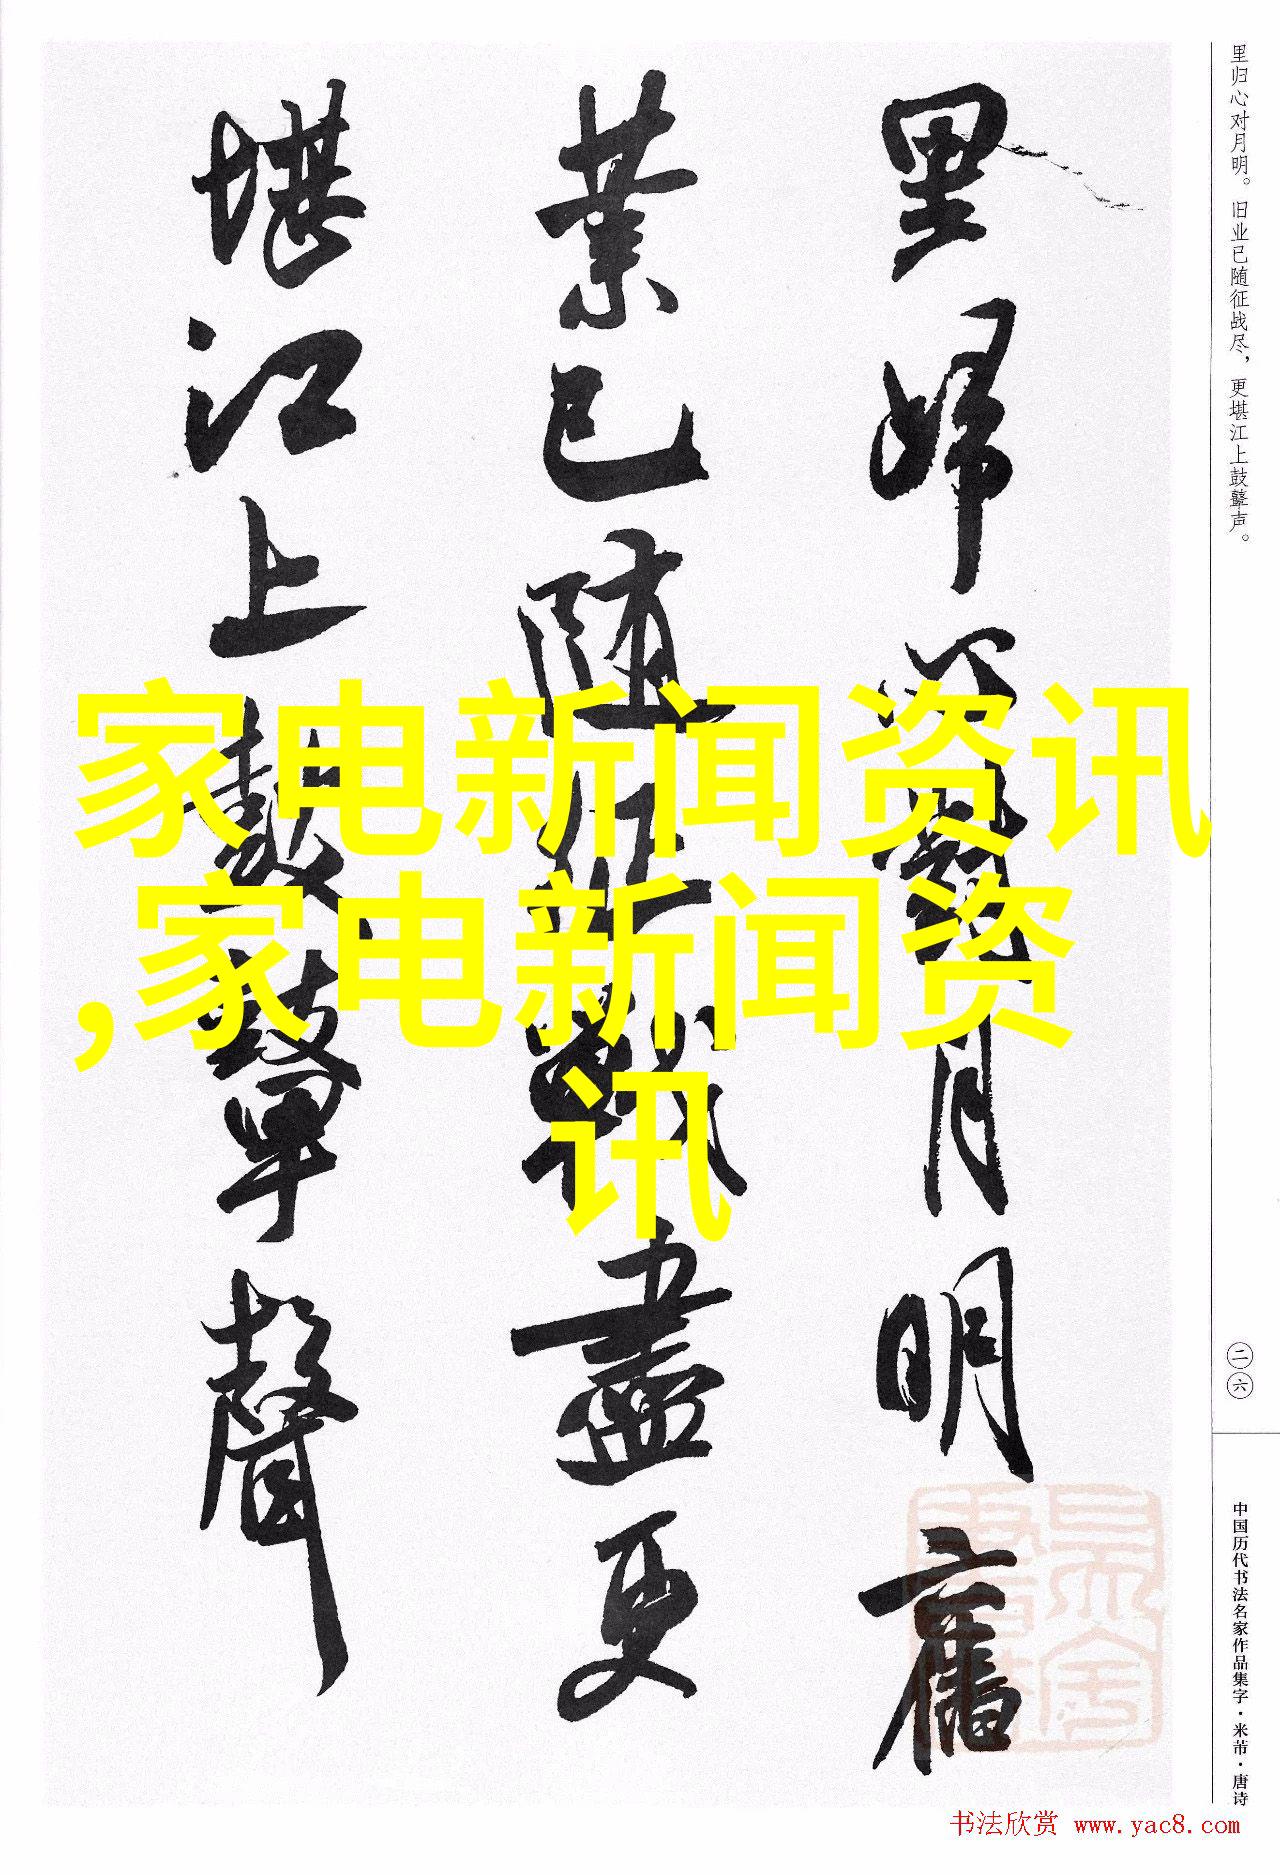 里归心对月明。旧业已随征战尽，更堪江上鼓鼙声。
里歸心對月明舊
業已随征戰盡更
堪江上鼓鼙聲
家电新闻资讯
,家电新闻资
讯
二六
中国历代书法名家作品集字·米芾·唐诗
书法欣赏 www.yac8.com